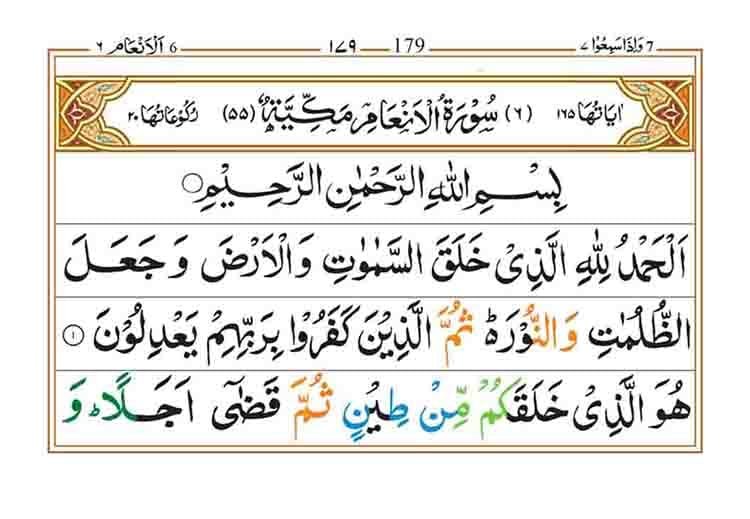 وَاِذَا سَمِعُوْا ٧ 7 179 ١٧٩ اَلْاَنْعَام ٦ 6
اٰيَاتُهَا ١٦٥ (٦) سُوْرَةُ الْاَنْعَامِ مَكِّيَّةٌ (٥٥) رُكُوْعَاتُهَا ٢٠
بِسْمِ اللّٰهِ الرَّحْمٰنِ الرَّحِيْمِ
اَلْحَمْدُ لِلّٰهِ الَّذِىْ خَلَقَ السَّمٰوٰتِ وَالْاَرْضَ وَجَعَلَ
الظُّلُمٰتِ وَالنُّوْرَ ؕ ثُمَّ الَّذِيْنَ كَفَرُوْا بِرَبِّهِمْ يَعْدِلُوْنَ ١
هُوَ الَّذِىْ خَلَقَكُمْ مِّنْ طِيْنٍ ثُمَّ قَضٰۤى اَجَلًا ؕ وَ